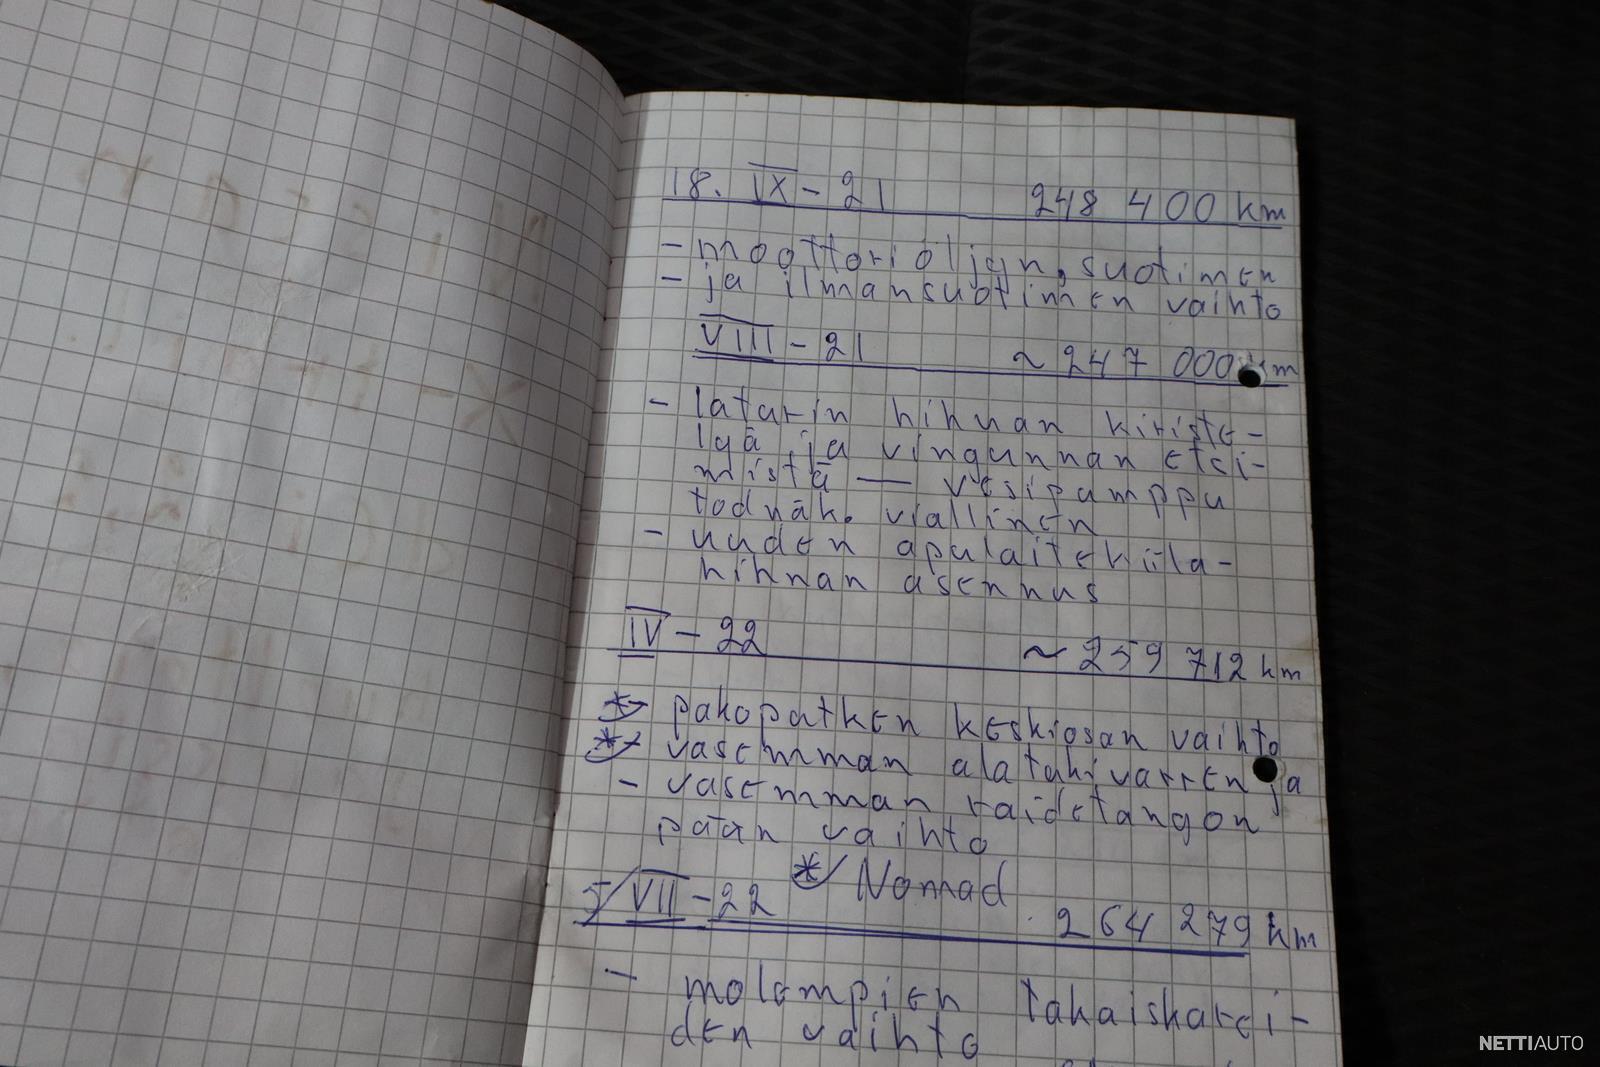 18. IX - 21 248 400 km
- moottoriöljyn, suotimen
- ja ilmansuotimen vaihto
VIII - 21 ~ 247 000 km
- laturin hihnan kiriste-
lyä ja vingunnan etsi-
mistä — vesipumppu
todnäk. viallinen
- uuden apulaitekiila-
hihnan asennus
IV - 22 ~ 259 712 km
* pakoputken keskiosan vaihto
* vasemman alatukivarren ja
- vasemman raidetangon
pään vaihto
* Nomad
5/VII - 22 264 279 km
- molempien takaiskarei-
den vaihto
NETTIAUTO